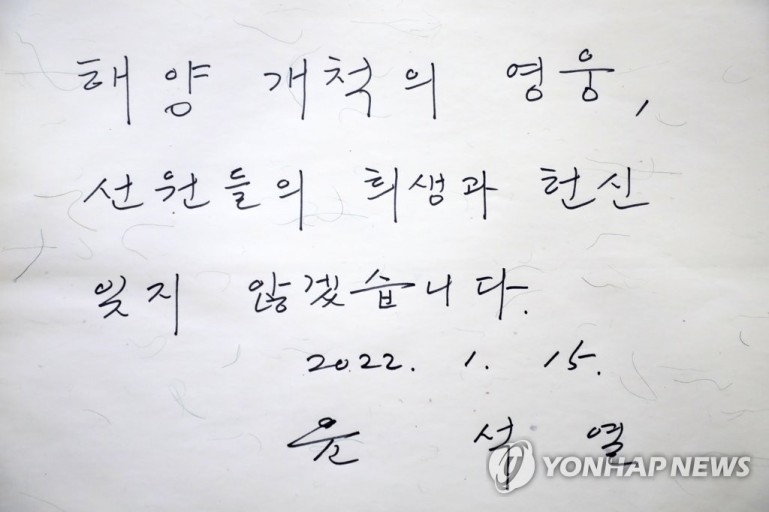 해양 개척의 영웅,
선원들의 희생과 헌신
잊지 않겠습니다.
2022. 1. 15.
윤 석 열
YONHAP NEWS